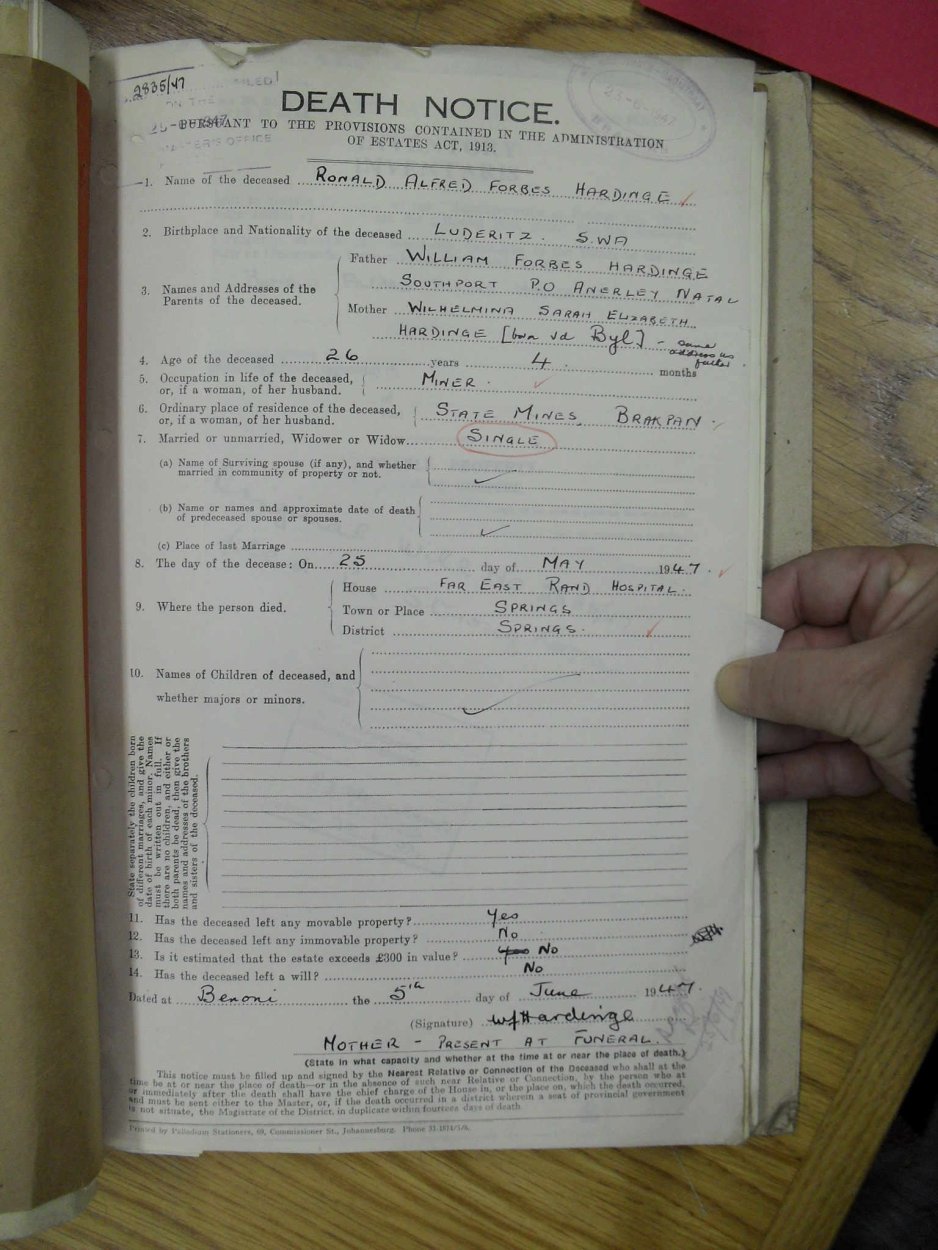 2835/47
DEATH NOTICE.
PURSUANT TO THE PROVISIONS CONTAINED IN THE ADMINISTRATION
OF ESTATES ACT, 1913.
1. Name of the deceased RONALD ALFRED FORBES HARDINGE
2. Birthplace and Nationality of the deceased LUDERITZ. S.WA
3. Names and Addresses of the Parents of the deceased.
Father WILLIAM FORBES HARDINGE
SOUTHPORT P.O ANERLEY NATAL
Mother WILHELMINA SARAH ELIZABETH
HARDINGE [born vd Byl] - same address as father.
4. Age of the deceased 26 years 4 months
5. Occupation in life of the deceased, MINER.
or, if a woman, of her husband.
6. Ordinary place of residence of the deceased, STATE MINES, BRAKPAN.
or, if a woman, of her husband.
7. Married or unmarried, Widower or Widow SINGLE
(a) Name of Surviving spouse (if any), and whether
married in community of property or not.
(b) Name or names and approximate date of death
of predeceased spouse or spouses.
(c) Place of last Marriage
8. The day of the decease: On 25 day of MAY 1947.
9. Where the person died.
House FAR EAST RAND HOSPITAL.
Town or Place SPRINGS
District SPRINGS.
10. Names of Children of deceased, and
whether majors or minors.
State separately the children born
of different marriages, and give the
date of birth of each minor. Names
must be written out in full. If
there are no children, and either or
both parents be dead, then give the
names and addresses of the brothers
and sisters of the deceased.
11. Has the deceased left any movable property? Yes
12. Has the deceased left any immovable property? No
13. Is it estimated that the estate exceeds £300 in value? No
14. Has the deceased left a will? No
Dated at Benoni the 5th day of June 1947.
(Signature) WfHardinge
MOTHER - PRESENT AT FUNERAL.
(State in what capacity and whether at the time at or near the place of death.)
This notice must be filled up and signed by the Nearest Relative or Connection of the Deceased who shall at the
time be at or near the place of death—or in the absence of such near Relative or Connection, by the person who at
or immediately after the death shall have the chief charge of the House in, or the place on, which the death occurred,
and must be sent either to the Master, or, if the death occurred in a district wherein a seat of provincial government
is not situate, the Magistrate of the District, in duplicate within fourteen days of death
Printed by Palladium Stationers, 69, Commissioner St., Johannesburg. Phone